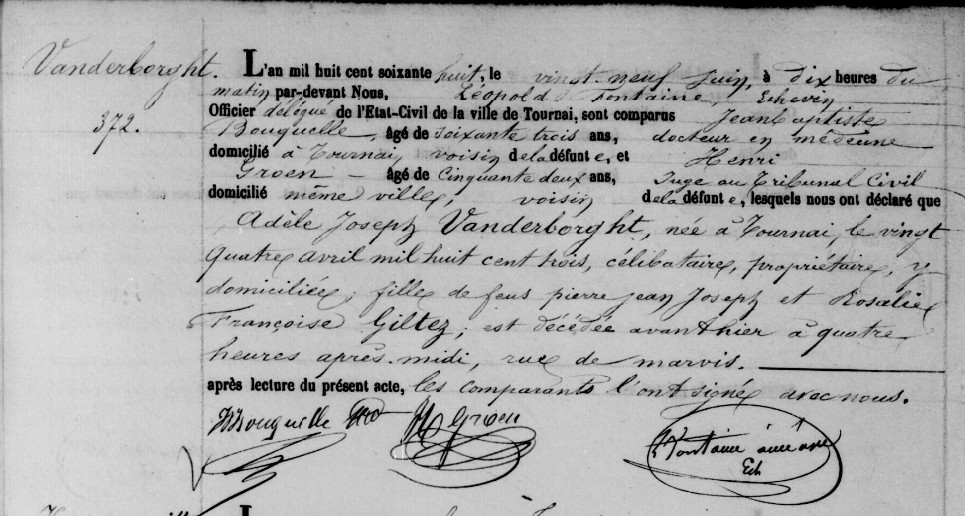 Vanderborght.
372.
L'an mil huit cent soixante huit, le vingt-neuf juin, à dix heures du
matin par-devant Nous, Léopold Fontaine, Echevin
Officier délégué de l'Etat-Civil de la ville de Tournai, sont comparus Jean Baptiste
Bouquelle, âgé de soixante trois ans, docteur en médecine
domicilié à Tournai, voisin de la défunte, et Henri
Groen - âgé de Cinquante deux ans, Juge au Tribunal Civil
domicilié même ville, voisin de la défunte, lesquels nous ont déclaré que
Adèle Joseph Vanderborght, née à Tournai, le vingt
quatre avril mil huit cent trois, célibataire, propriétaire, y
domiciliée, fille de feus pierre jean Joseph et Rosalie
Françoise Giltez, est décédée avant hier à quatre
heures après-midi, rue de marvis.
après lecture du présent acte, les comparants l'ont signé avec nous.
Bouquelle H Groen Fontaine
Ech
L